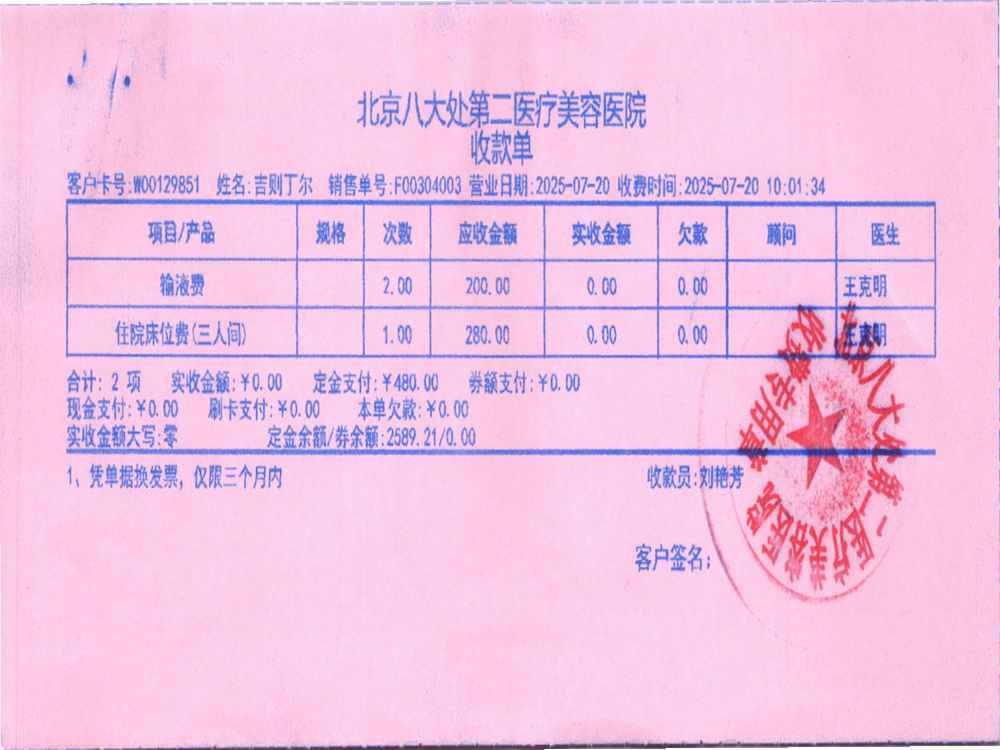 北京八大处第二医疗美容医院
收款单
客户卡号:W00129851 姓名:吉则丁尔 销售单号:F00304003 营业日期:2025-07-20 收费时间:2025-07-20 10:01:34
项目/产品 规格 次数 应收金额 实收金额 欠款 顾问 医生
输液费 2.00 200.00 0.00 0.00 王克明
住院床位费(三人间) 1.00 280.00 0.00 0.00 王克明
合计: 2 项 实收金额:¥0.00 定金支付:¥480.00 券额支付:¥0.00
现金支付:¥0.00 刷卡支付:¥0.00 本单欠款:¥0.00
实收金额大写:零 定金余额/券余额:2589.21/0.00
1、凭单据换发票，仅限三个月内 收款员:刘艳芳
客户签名:
北京八大处第二医疗美容医院
收费专用章